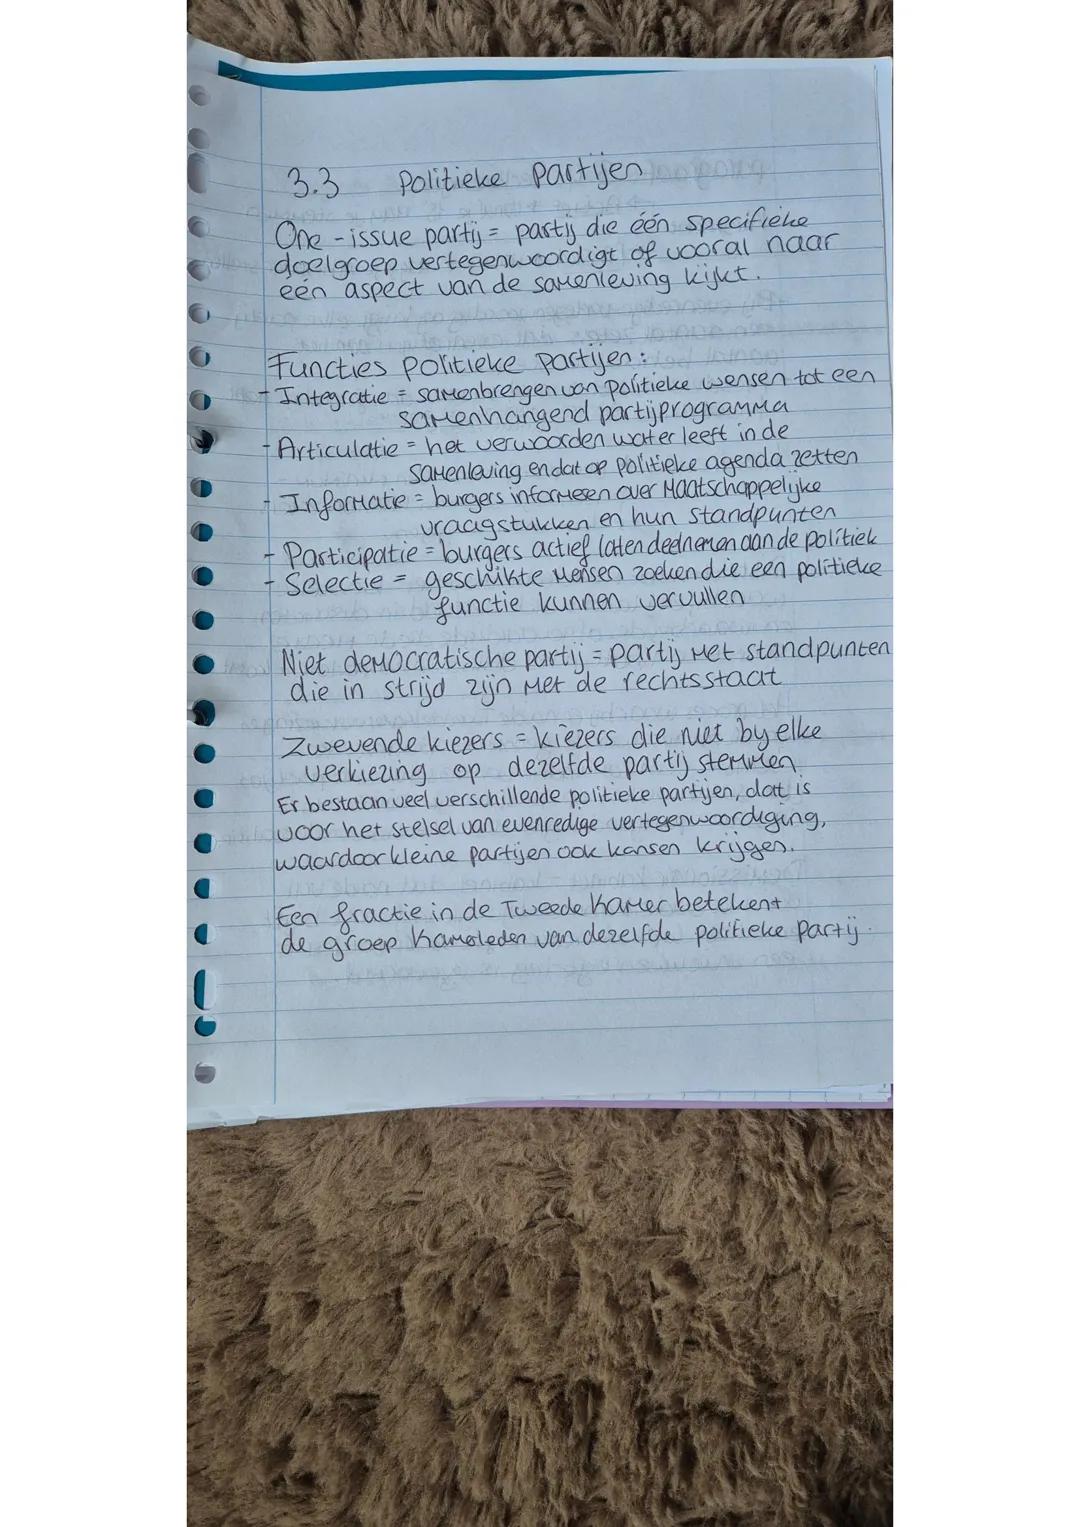 3.3 Politieke partijen
One-issue partij = partij die één specifieke
doelgroep vertegenwoordigt of vooral naar
eén aspect van de samenleving kijkt.
Functies politieke partijen:
- Integratie = samenbrengen van politieke wensen tot een
samenhangend partijprogramma
- Articulatie = het verwoorden wat er leeft in de
samenleving en dat op politieke agenda zetten
- Informatie = burgers informeren over Maatschappelijke
vraagstukken en hun standpunten
- Participatie = burgers actief laten deelnemen aan de politiek
- Selectie = geschikte mensen zoeken die een politieke
functie kunnen vervullen
Niet democratische partij = partij met standpunten
die in strijd zijn met de rechtsstaat
Zwevende kiezers = kiezers die niet by elke
verkiezing op dezelfde partij stemmen
Er bestaan veel verschillende politieke partijen, dat is
voor het stelsel van evenredige vertegenwoordiging,
waardoor kleine partijen ook kansen krijgen.
Een fractie in de Tweede Kamer betekent
de groep kamerleden van dezelfde politieke partij.